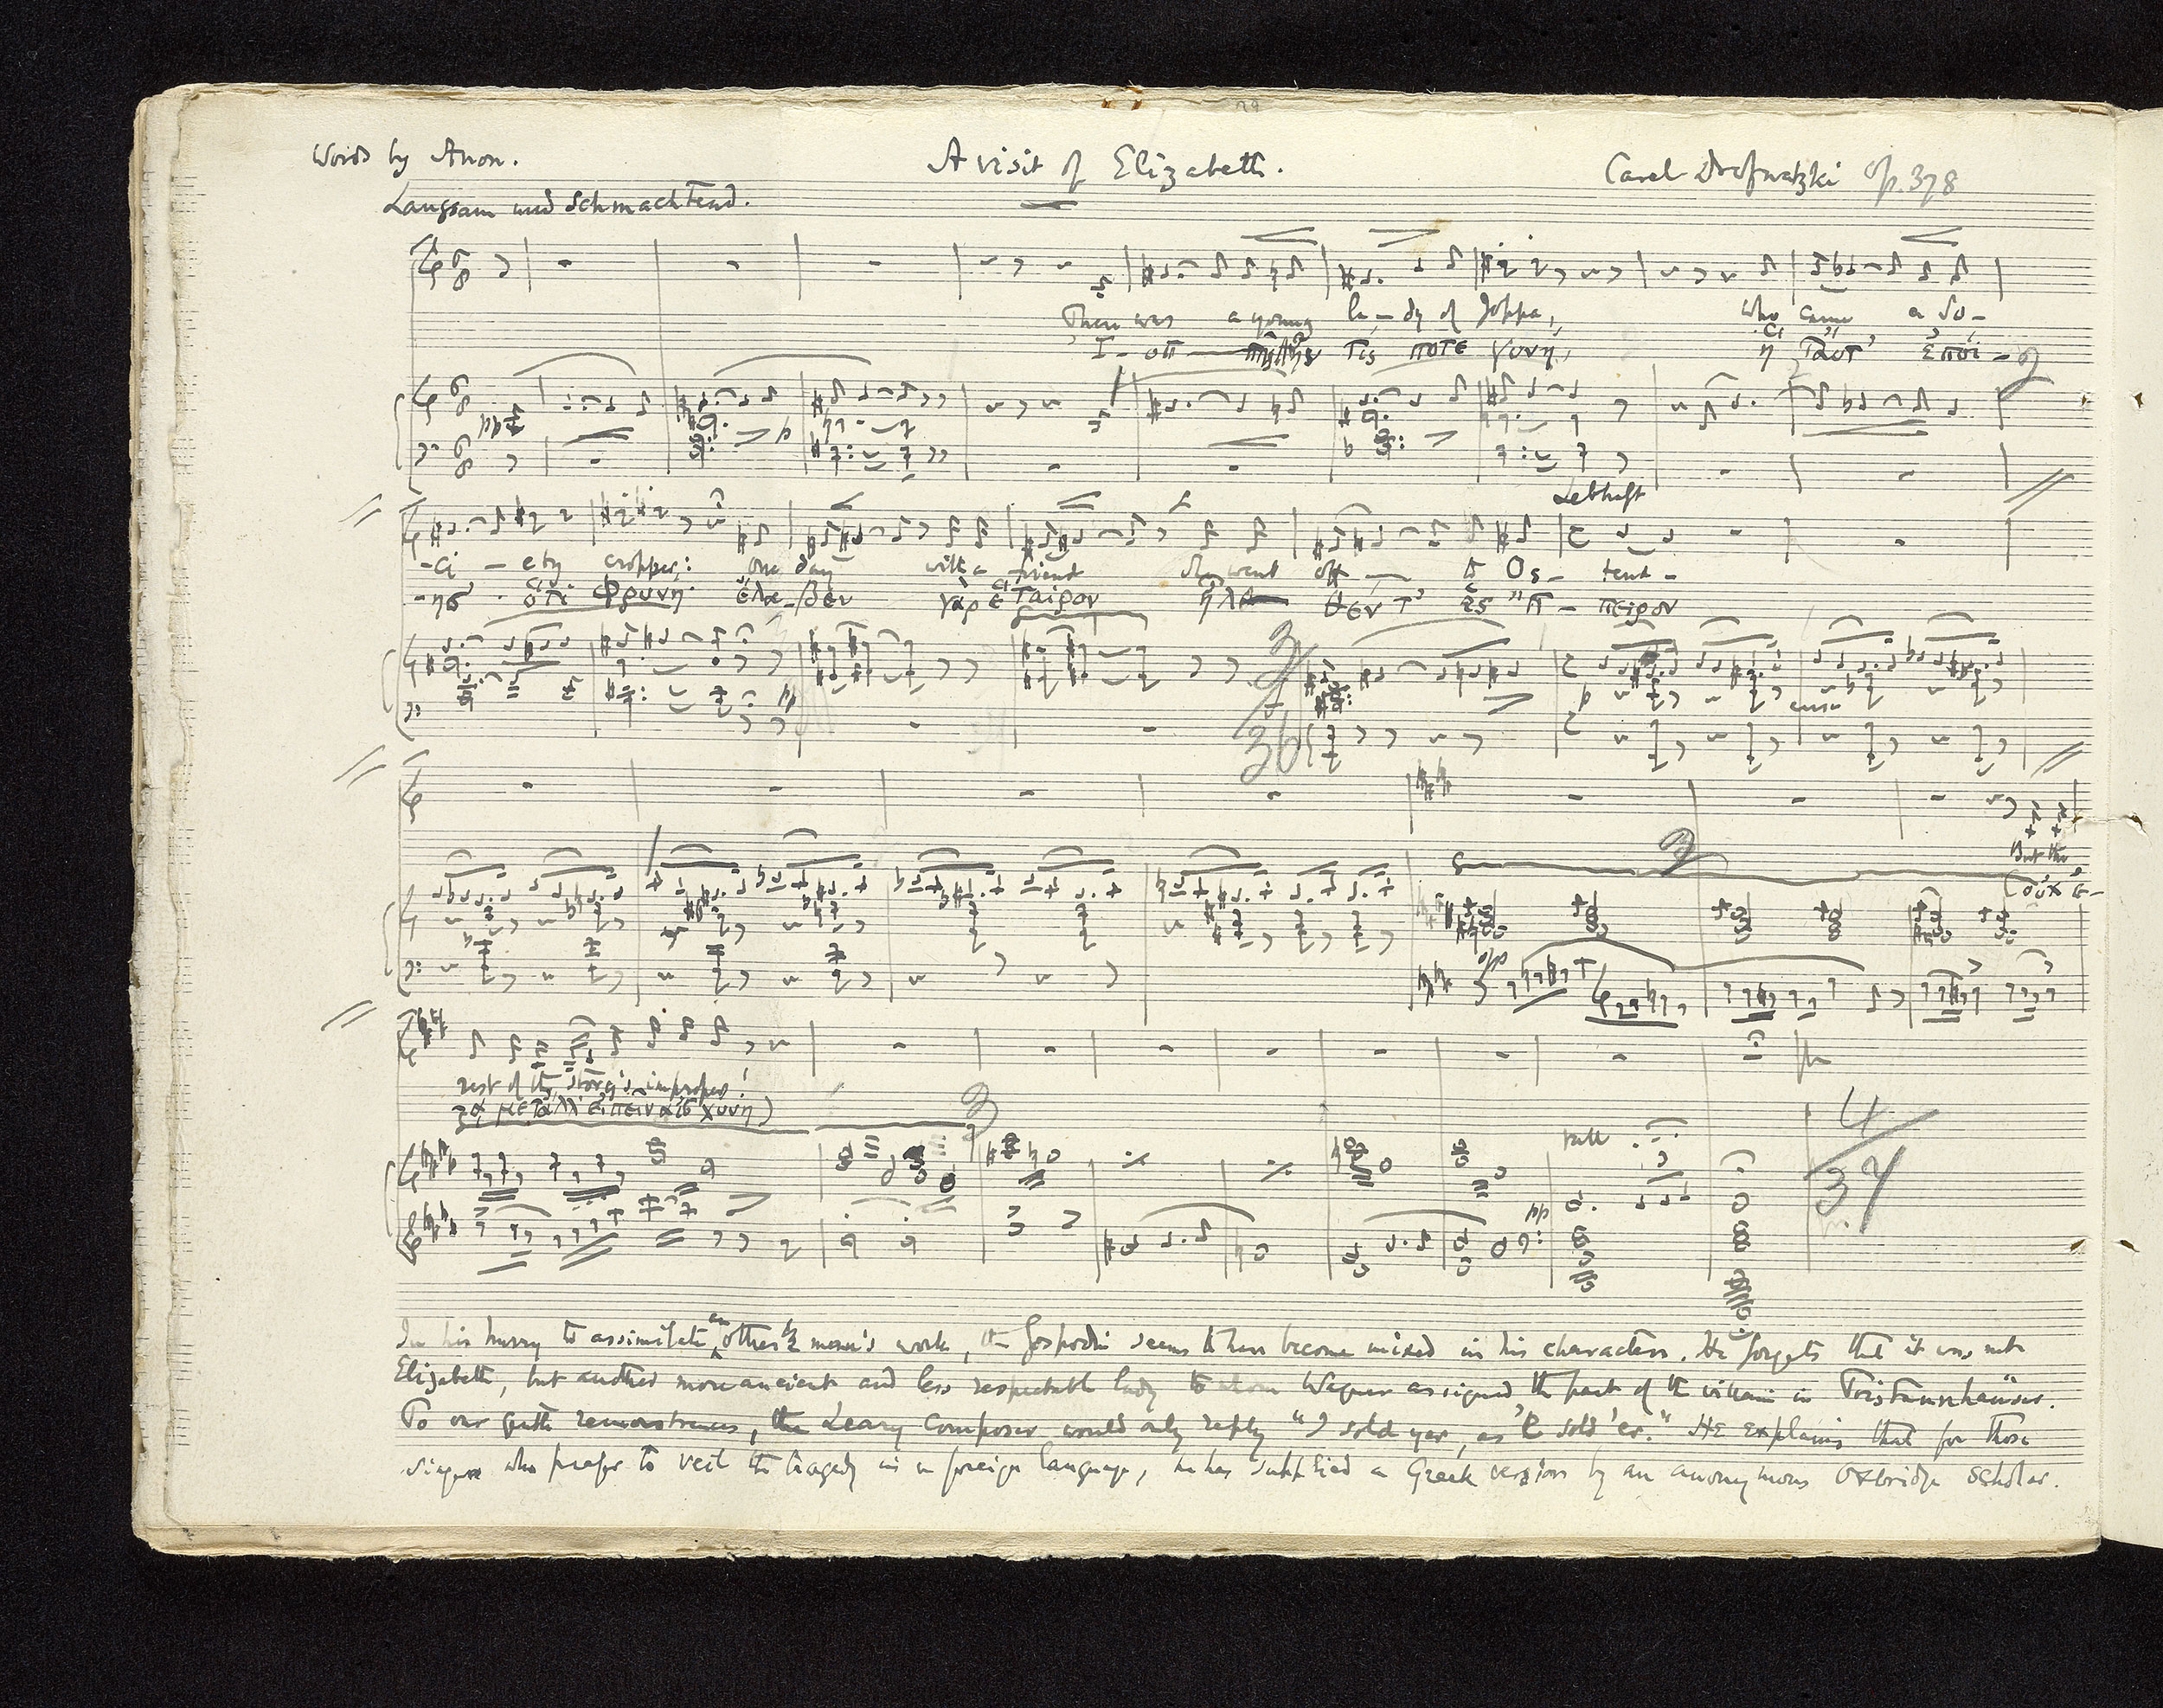 Words by Anon.
A visit of Elizabeth.
Carel Drofnatzki Op. 378
Langsam und Schmachtend.
There was a young la - dy of Joppa,
Who came a So -
Ι - οπ τις ποτε γυνη,
ἡ ταυτ' ἐποι -
pp
p
Lebhaft
- ci - ety cropper; one day with a friend she went off to Os - tend -
- ησ' ὁτι Φρυνη· ἐλα - βεν γαρ ἑταιρον ἠλ θεν τ' ἐς Ἠ - πειρον
3
36
pp
p
3
But the
(οὐχ
pp
rest of the story's improper!
τα μεταλλ' εἰπειν αἰσχυνη)
3
rall
4
37
pp
In his hurry to assimilate another ½ monde's work, the Gospodin seems to have become mixed in his characters. He forgets that it was not
Elizabeth, but another more ancient and less respectable lady to whom Wagner assigned the part of the villain in Tristannhäuser.
To our gentle remonstrances, the Leary Composer would only reply "I sold yer, as 'e sold 'er." He explains that for those
singers who prefer to veil the tragedy in a foreign language, he has supplied a Greek version by an anonymous Oxbridge Scholar.